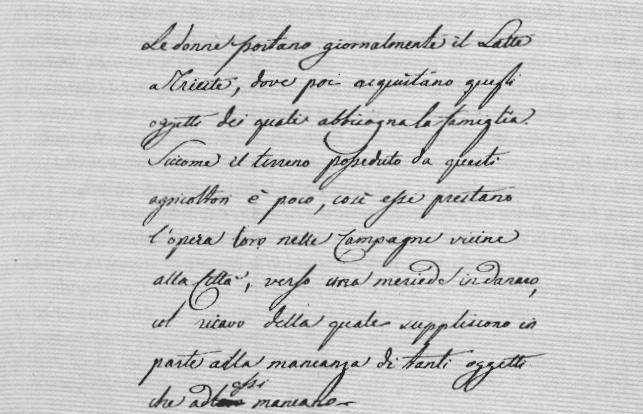 Le donne portano giornalmente il Latte
a Trieste, dove poi acquistano quelli
oggetti dei quali abbisogna la famiglia.
Siccome il terreno posseduto da questi
agricoltori è poco, così essi prestano
l'opera loro nelle Campagne vicine
alla Città, verso una mercede in danaro,
col ricavo della quale suppliscono in
parte alla mancanza di tanti oggetti
che ad essi mancano.